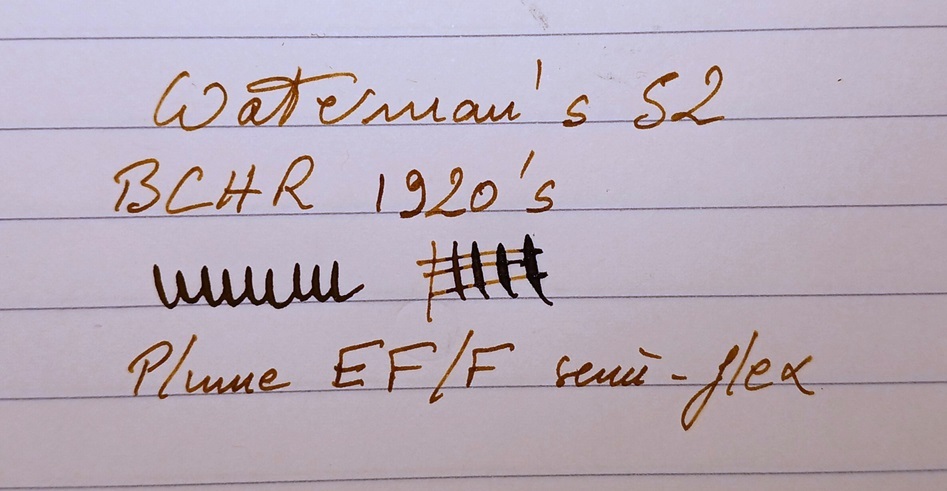 Waterman's 52
BCHR 1920's
Plume EF/F semi-flex